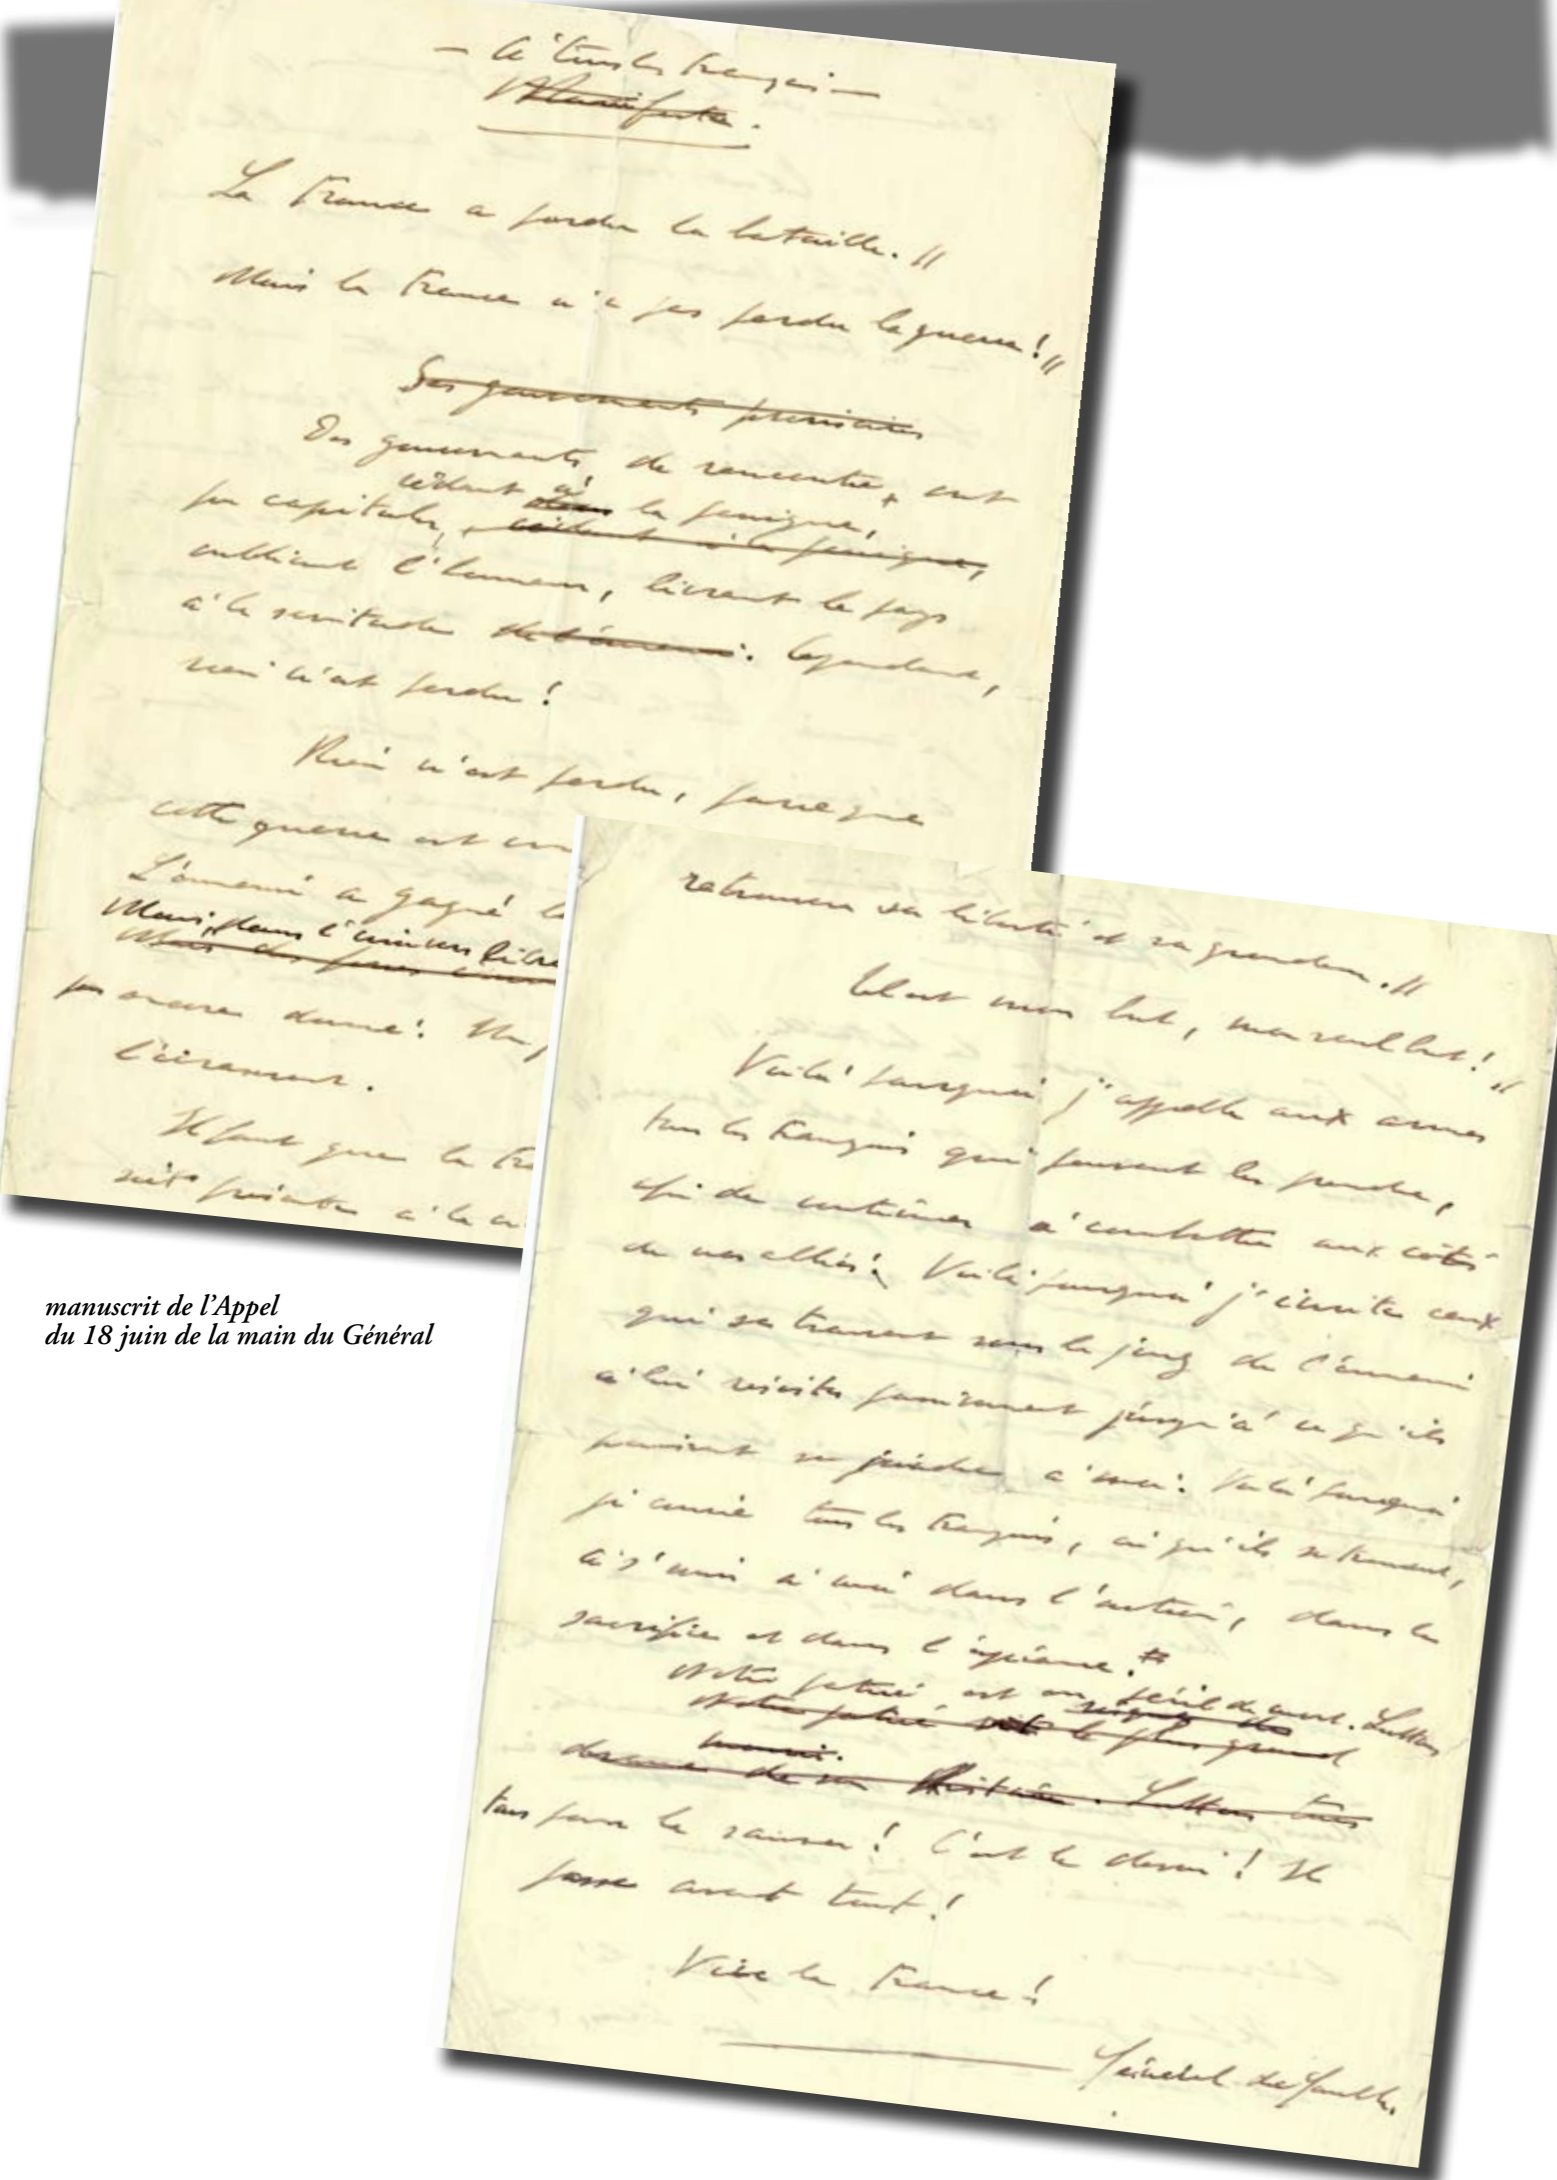 — A tous les Français —
Manifeste.
La France a perdu la bataille. //
Mais la France n'a pas perdu la guerre ! //
Des gouvernants
Des gouvernants de rencontre, ont
cédant à la panique,
pu capituler, cédant à la panique,
oubliant l'honneur, livrant le pays
à la servitude de l'ennemi. Cependant,
rien n'est perdu !
Rien n'est perdu, parce que
cette guerre est une
L'ennemi a gagné
Mais, dans l'univers libre
Mais des forces
pas encore donné. Un
l'écrasement.
Il faut que la Fra
soit présente à la
manuscrit de l'Appel
du 18 juin de la main du Général
retrouvera sa liberté et sa grandeur. //
Tel est mon but, mon seul but ! //
Voilà pourquoi j'appelle aux armes
tous les Français qui peuvent les prendre,
afin de continuer à combattre aux côtés
de nos alliés. Voilà pourquoi j'invite ceux
qui se trouvent sous le joug de l'ennemi
à lui résister jusqu'à ce qu'ils
puissent se joindre à moi. Voilà pourquoi
je convie tous les Français, où qu'ils se trouvent,
à s'unir à moi dans l'action, dans le
sacrifice et dans l'espérance.
Notre patrie est en péril de mort. Luttons
Notre patrie le plus grand
mourir.
drame de son histoire. Luttons tous
tous pour la sauver ! C'est le devoir ! Il
passe avant tout !
Vive la France !
Général de Gaulle.